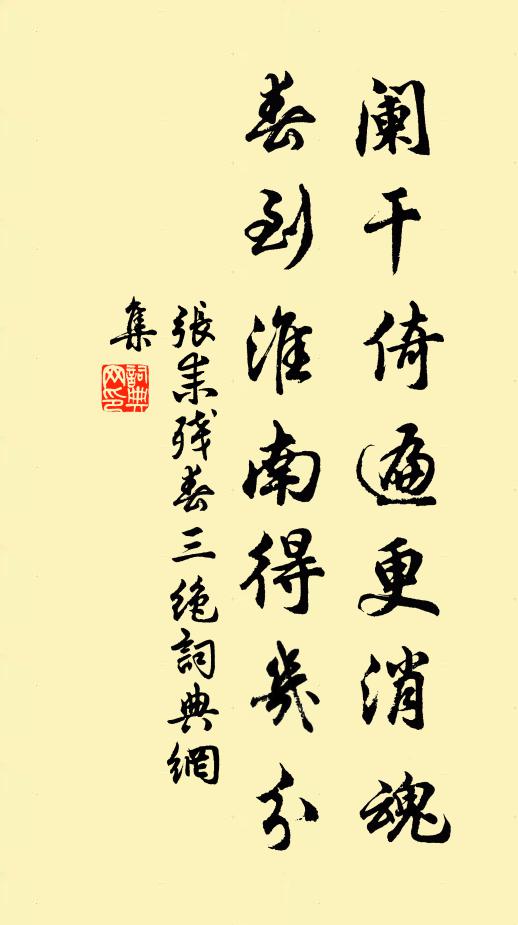 阑干倚遍更消魂
春到淮南得几分
張耒残春三绝詞典網
集
詞典
网印